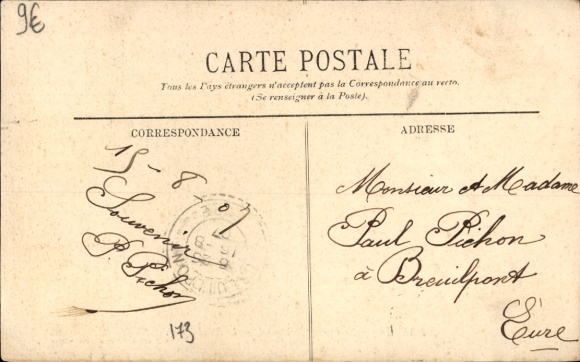 9€
CARTE POSTALE
Tous les Pays étrangers n'acceptent pas la Correspondance au recto.
(Se renseigner à la Poste).
CORRESPONDANCE
15-8-07
Souvenir
P. Pichon
173
ADRESSE
Monsieur et Madame
Paul Pichon
à Breuilpont
Eure